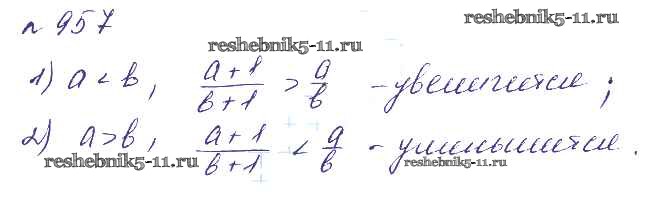 № 957
reshebnik5-11.ru
reshebnik5-11.ru
1) a < b, (a+1)/(b+1) > a/b - увеличится;
2) a > b, (a+1)/(b+1) < a/b - уменьшится.
reshebnik5-11.ru
reshebnik5-11.ru